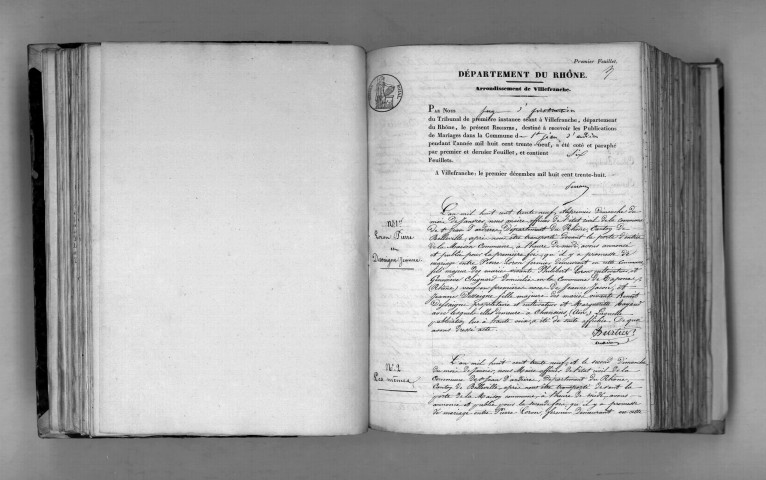 Premier Feuillet.
DÉPARTEMENT DU RHÔNE.
Arrondissement de Villefranche.
PAR NOUS juge d'instruction
du Tribunal de première instance séant à Villefranche, département
du Rhône, le présent REGISTRE, destiné à recevoir les Publications
de Mariages dans la Commune de St Jean d'ardières
pendant l'année mil huit cent trente neuf, a été coté et paraphé
par premier et dernier Feuillet, et contient six
Feuillets.
A Villefranche, le premier décembre mil huit cent trente-huit.
N° 1er
Loron Pierre
et
Dessaigne Jeanne
L'an mil huit cent trente neuf, et le premier Dimanche du
mois de Janvier, nous maire officier de l'état civil de la commune
de St Jean d'ardières, Département du Rhône, Canton de
Belleville, après nous être transporté devant la porte d'entrée
de la Maison Commune, à l'heure de midi, avons annoncé
et publié pour la première fois, qu'il y a promesse de
mariage entre Pierre Loron fermier demeurant en cette commune
fils majeur des mariés vivants Philibert Loron cultivateur et
Domiciliés en la Commune de Taponas,
(Rhône) veuf en premières noces de Jeanne et
Jeanne Dessaigne fille majeure des mariés vivants Benoit
Dessaigne propriétaire et cultivateur et Marguerite
avec lesquels elle demeure à (Ain), laquelle
publication lue à haute voix, a été de suite affichée. De quoi
avons dressé acte.
N° 2
Les mêmes
L'an mil huit cent trente neuf, et le second dimanche
du mois de Janvier, nous Maire officier de l'état civil de la
Commune de St Jean d'ardières, département du Rhône,
Canton de Belleville, après nous être transporté devant la
porte de la Maison commune, à l'heure de midi, avons
annoncé et publié pour la seconde fois, qu'il y a promesse
de mariage entre Pierre Loron, fermier demeurant en cette